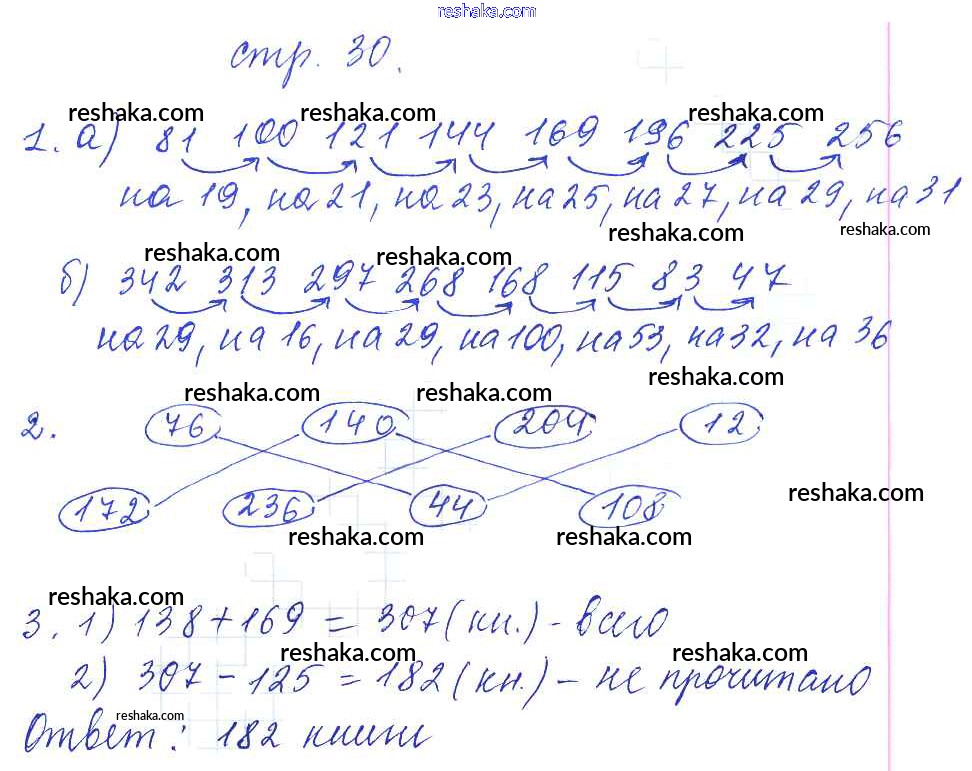 reshaka.com
стр. 30.
reshaka.com reshaka.com reshaka.com
1. а) 81 100 121 144 169 196 225 256
на 19, на 21, на 23, на 25, на 27, на 29, на 31
reshaka.com reshaka.com reshaka.com reshaka.com
б) 342 313 297 268 168 115 83 47
на 29, на 16, на 29, на 100, на 53, на 32, на 36
reshaka.com reshaka.com reshaka.com
2. 76 140 204 12
172 236 44 108
reshaka.com
reshaka.com reshaka.com
reshaka.com
3. 1) 138 + 169 = 307 (кн.) - всего
reshaka.com reshaka.com
2) 307 - 125 = 182 (кн.) - не прочитано
reshaka.com
Ответ: 182 книги